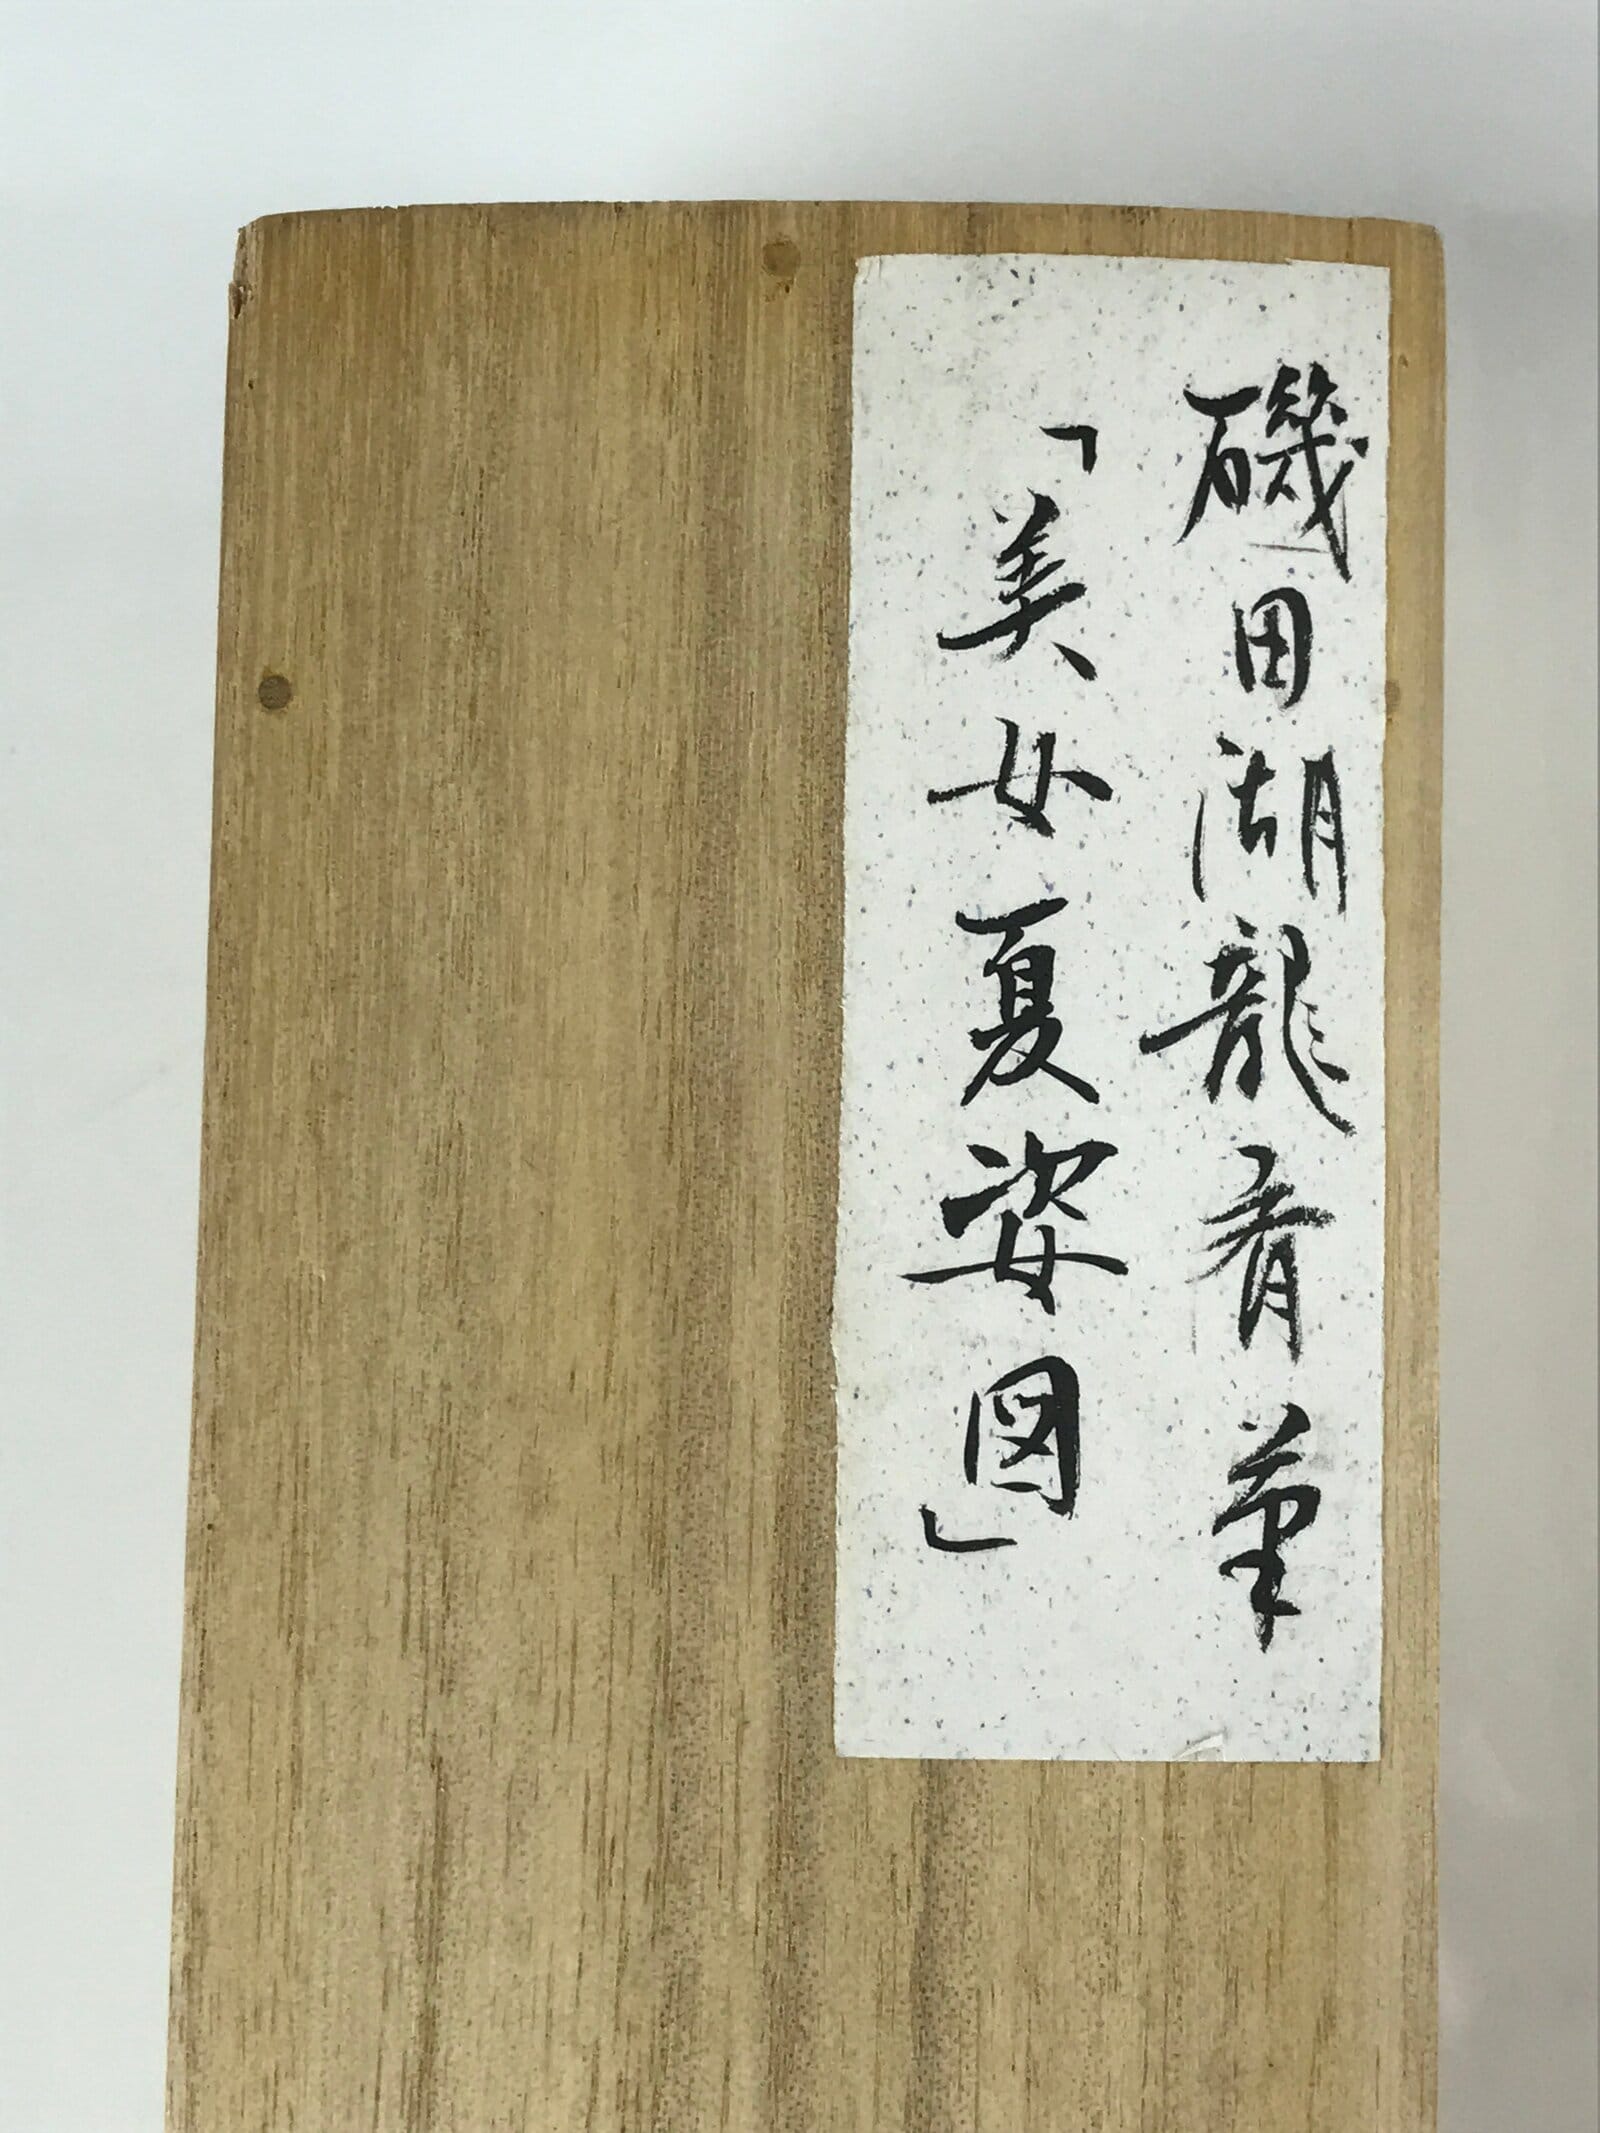 磯田湖龍斎筆
「美女夏姿図」